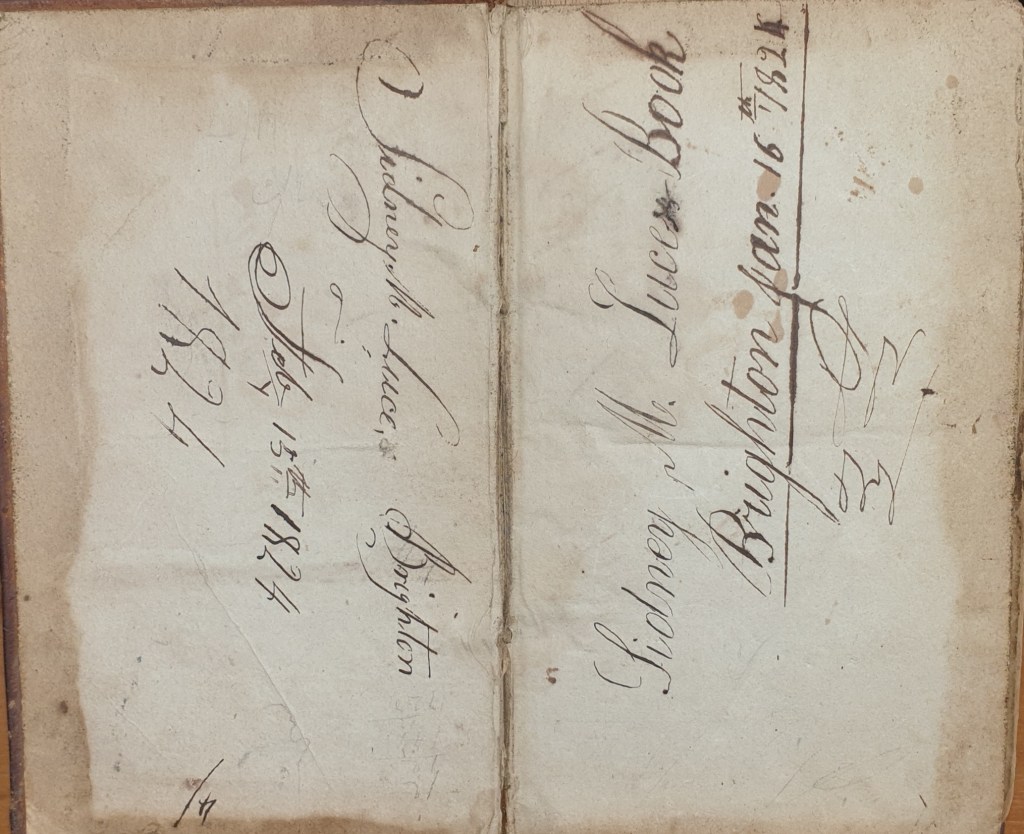 Sidney M. Luce, Brighton
Feb, 15th 1824
1824
4
Sidney M. Luce Book
Brighton Jan. 16th 1824